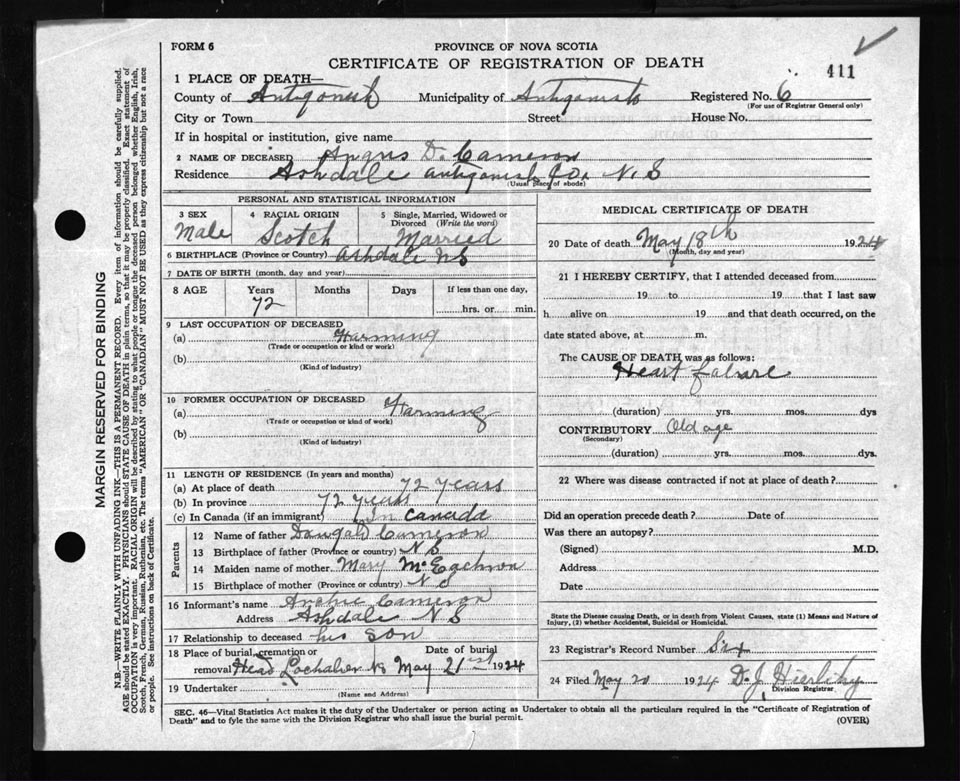 FORM 6
PROVINCE OF NOVA SCOTIA
CERTIFICATE OF REGISTRATION OF DEATH
411
1 PLACE OF DEATH—
County of Antigonish Municipality of Antigonish Registered No. 6
(For use of Registrar General only)
City or Town Street House No.
If in hospital or institution, give name
2 NAME OF DECEASED Angus D. Cameron
Residence Ashdale Antigonish Co. N.S
(Usual place of abode)
PERSONAL AND STATISTICAL INFORMATION
3 SEX Male
4 RACIAL ORIGIN Scotch
5 Single, Married, Widowed or Divorced (Write the word) Married
6 BIRTHPLACE (Province or Country) Ashdale NS
7 DATE OF BIRTH (month, day and year)
8 AGE Years Months Days If less than one day,
72 hrs. or min.
9 LAST OCCUPATION OF DECEASED
(a) Farming
(Trade or occupation or kind or work)
(b)
(Kind of industry)
10 FORMER OCCUPATION OF DECEASED
(a) Farming
(Trade or occupation or kind of work)
(b)
(Kind of industry)
11 LENGTH OF RESIDENCE (In years and months)
(a) At place of death 72 years
(b) In province 72 years
(c) In Canada (if an immigrant) In Canada
Parents
12 Name of father Cameron
13 Birthplace of father (Province or country) N S
14 Maiden name of mother Mary
15 Birthplace of mother (Province or country) N S
16 Informant's name Archie Cameron
Address Ashdale N S
17 Relationship to deceased his son
18 Place of burial, cremation or removal Date of burial
Head Lochaber NS May 21st 1924
19 Undertaker
(Name and Address)
MEDICAL CERTIFICATE OF DEATH
20 Date of death May 18th 1924
(Month, day and year)
21 I HEREBY CERTIFY, that I attended deceased from
19 to 19 that I last saw
h alive on 19 and that death occurred, on the
date stated above, at m.
The CAUSE OF DEATH was as follows:
Heart falure
(duration) yrs. mos. dys
CONTRIBUTORY Old age
(Secondary)
(duration) yrs. mos. dys.
22 Where was disease contracted if not at place of death?
Did an operation precede death? Date of
Was there an autopsy?
(Signed) M.D.
Address
Date
State the Disease causing Death, or in death from Violent Causes, state (1) Means and Nature of
Injury, (2) whether Accidental, Suicidal or Homicidal.
23 Registrar's Record Number Six
24 Filed May 20 1924 D. J.
Division Registrar
SEC. 46—Vital Statistics Act makes it the duty of the Undertaker or person acting as Undertaker to obtain all the particulars required in the "Certificate of Registration of
Death" and to fyle the same with the Division Registrar who shall issue the burial permit. (OVER)
MARGIN RESERVED FOR BINDING
N.B.—WRITE PLAINLY WITH UNFADING INK—THIS IS A PERMANENT RECORD. Every item of information should be carefully supplied.
AGE should be stated EXACTLY. PHYSICIANS should STATE CAUSE OF DEATH in plain terms, so that it may be properly classified. Exact statement of
OCCUPATION is very important. RACIAL ORIGIN will be described by stating to what people or tongue the deceased person belonged whether English, Irish,
Scotch, French, German, Russian, Ruthenian, etc. The terms "AMERICAN" OR "CANADIAN" MUST NOT BE USED as they express citizenship but not a race
or people. See instructions on back of Certificate.